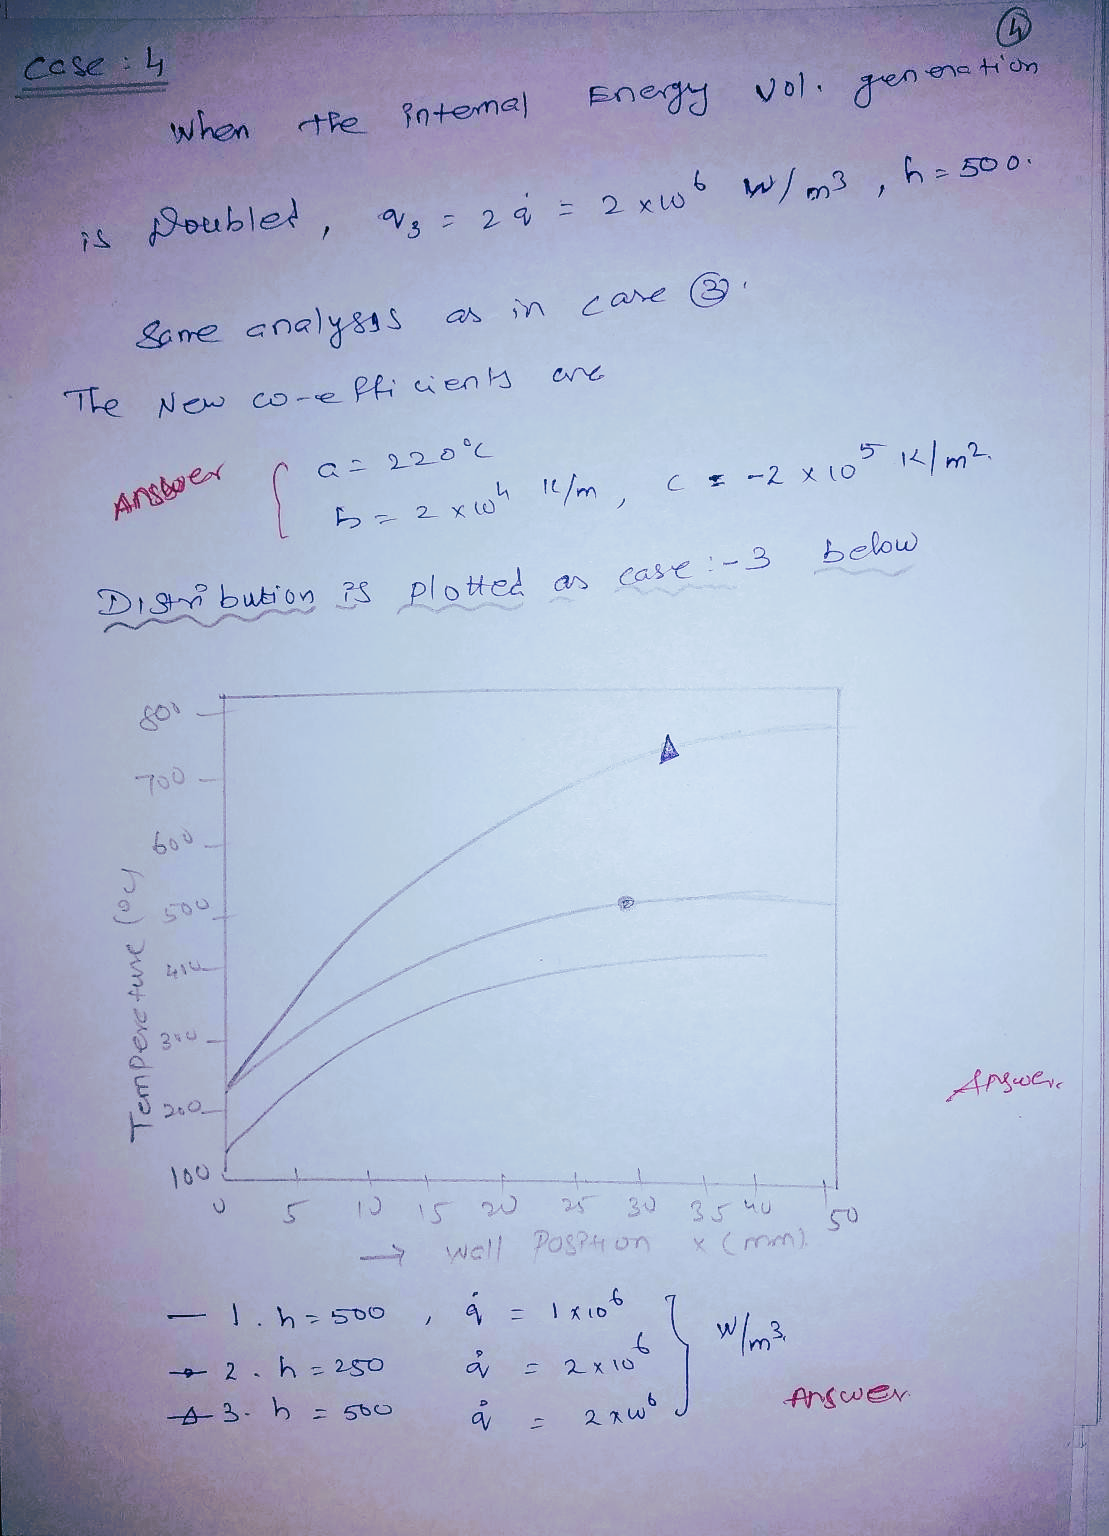 ④
case : 4
When the internal Energy vol. generation
is Doubled, q3 = 2q̇ = 2 x 10⁶ W/m3, h = 500.
Same analysis as in case ③.
The New co-efficients are
Answer { a = 220°C
b = 2 x 10⁴ K/m, c = -2 x 10⁵ K/m².
Distribution is plotted as case :- 3 below
800
700
600
500
400
300
200
100
Temperature (°C)
0 5 10 15 20 25 30 35 40 50
→ Wall Position x (mm)
Answer
— 1. h = 500, q̇ = 1 x 10⁶
2. h = 250 q̇ = 2 x 10⁶ } W/m³
3. h = 500 q̇ = 2 x 10⁶
Answer